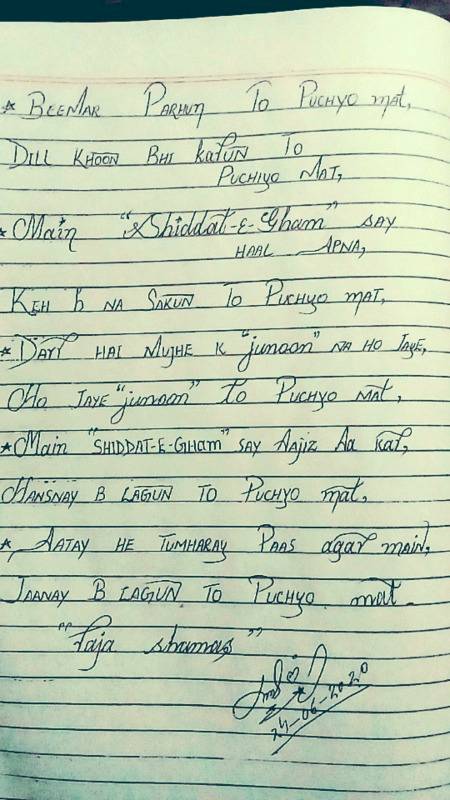 * BEEMAR PARHUN TO PUCHYO mat,
DILL KHOON BHI KARUN TO
PUCHIYO MAT,
* Main "Shiddat-E-Gham" SAY
HAAL APNA,
KEH b NA SAKUN TO PUCHYO MAT,
* DARR HAI MUJHE K "junoon" NA HO JAYE,
HO JAYE "junoon" to PUCHYO MAT,
* Main "SHIDDAT-E-GHAM" SAY AAJIZ AA kar,
HANSNAY B LAGUN TO PUCHYO mat,
* AATAY HE TUMHARAY PAAS agar MAIN,
JAANAY B LAGUN TO PUCHYO mat.
"Raja shamas"
24-06-2020